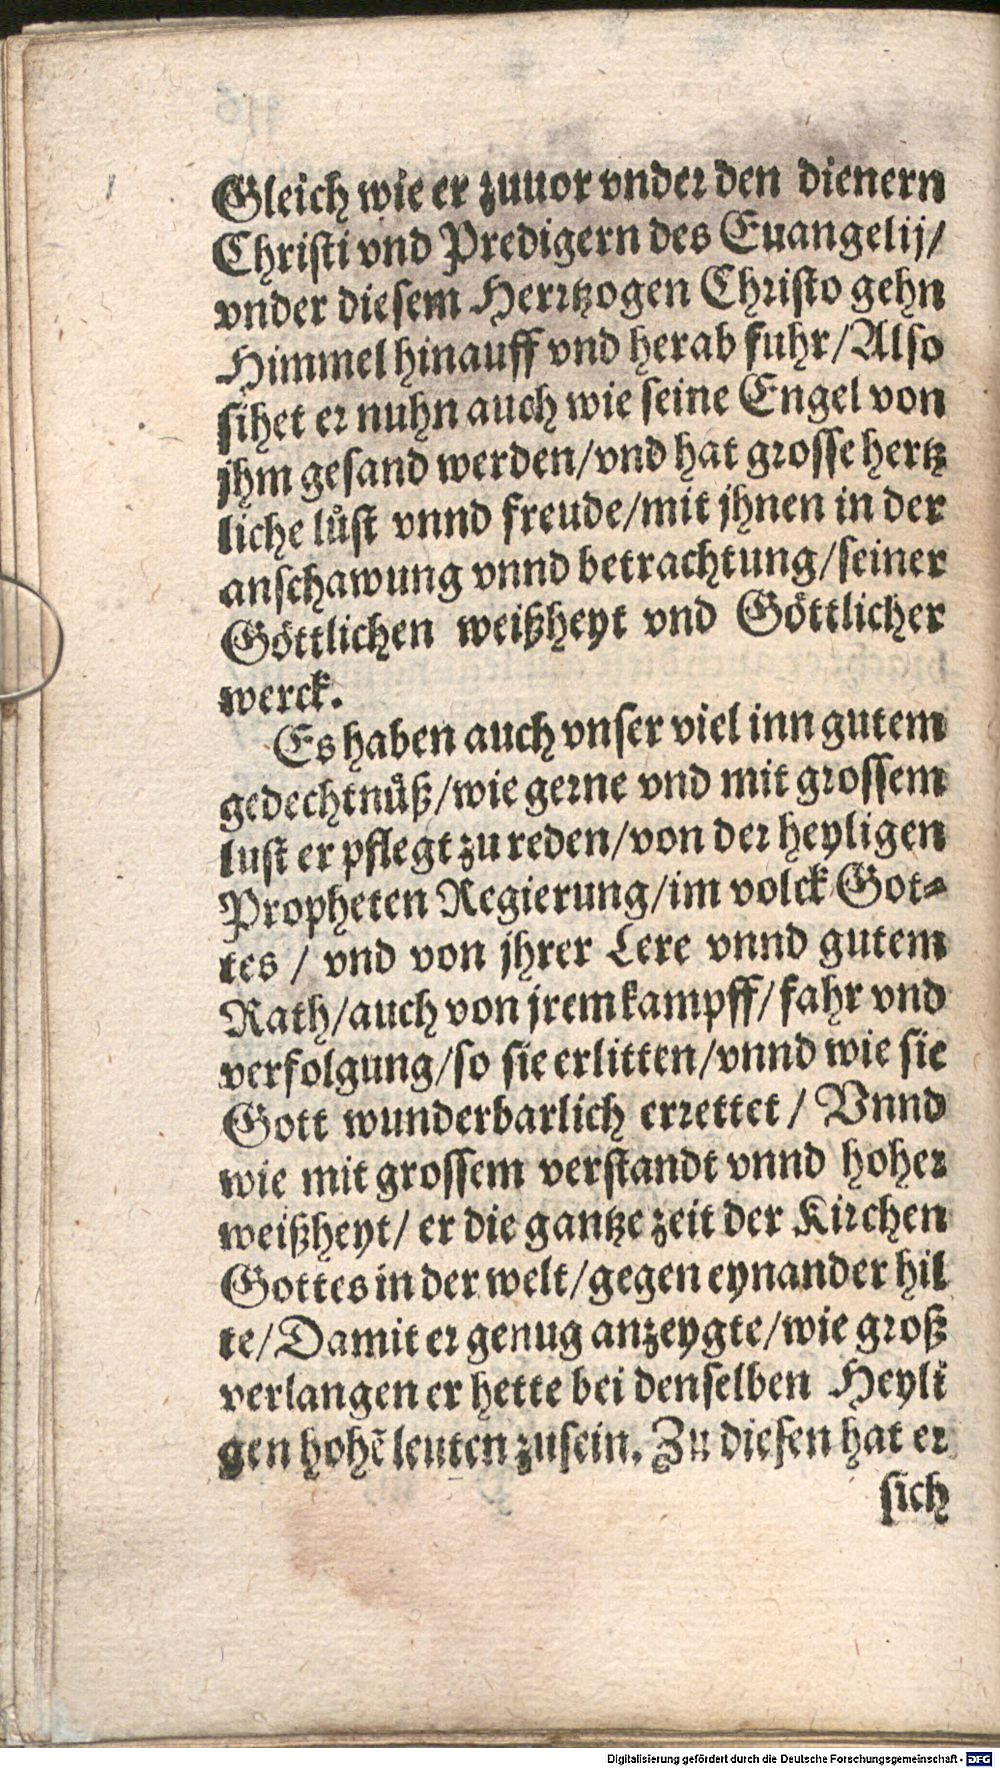 Gleich wie er zuuor vnder den dienern
Christi vnd Predigern des Euangelij/
vnder diesem Herrtzogen Christo gehn
Himmel hinauff vnd herab fuhr/Also
sihet er nuhn auch wie seine Engel von
jhm gesand werden/vnd hat grosse hertz
liche lůst vnnd freude/mit jhnen in der
anschawung vnnd betrachtung/seiner
Göttlichen weißheyt vnd Göttlicher
werck.
Es haben auch vnser viel inn gutem
gedechtnůß/wie gerne vnd mit grossem
lust er pflegt zu reden/von der heyligen
Propheten Regierung/im volck Got-
tes / vnd von jhrer Lere vnnd gutem
Rath/auch von jrem kampff/fahr vnd
verfolgung/so sie erlitten/vnnd wie sie
Gott wunderbarlich errettet / Vnnd
wie mit grossem verstandt vnnd hoher
weißheyt/ er die gantze zeit der Kirchen
Gottes in der welt/gegen eynander hil
te/Damit er genug anzeygte/wie groß
verlangen er hette bei denselben Heyli
gen hohẽ leuten zusein. Zu diesen hat er
sich
Digitalisierung gefördert durch die Deutsche Forschungsgemeinschaft - DFG